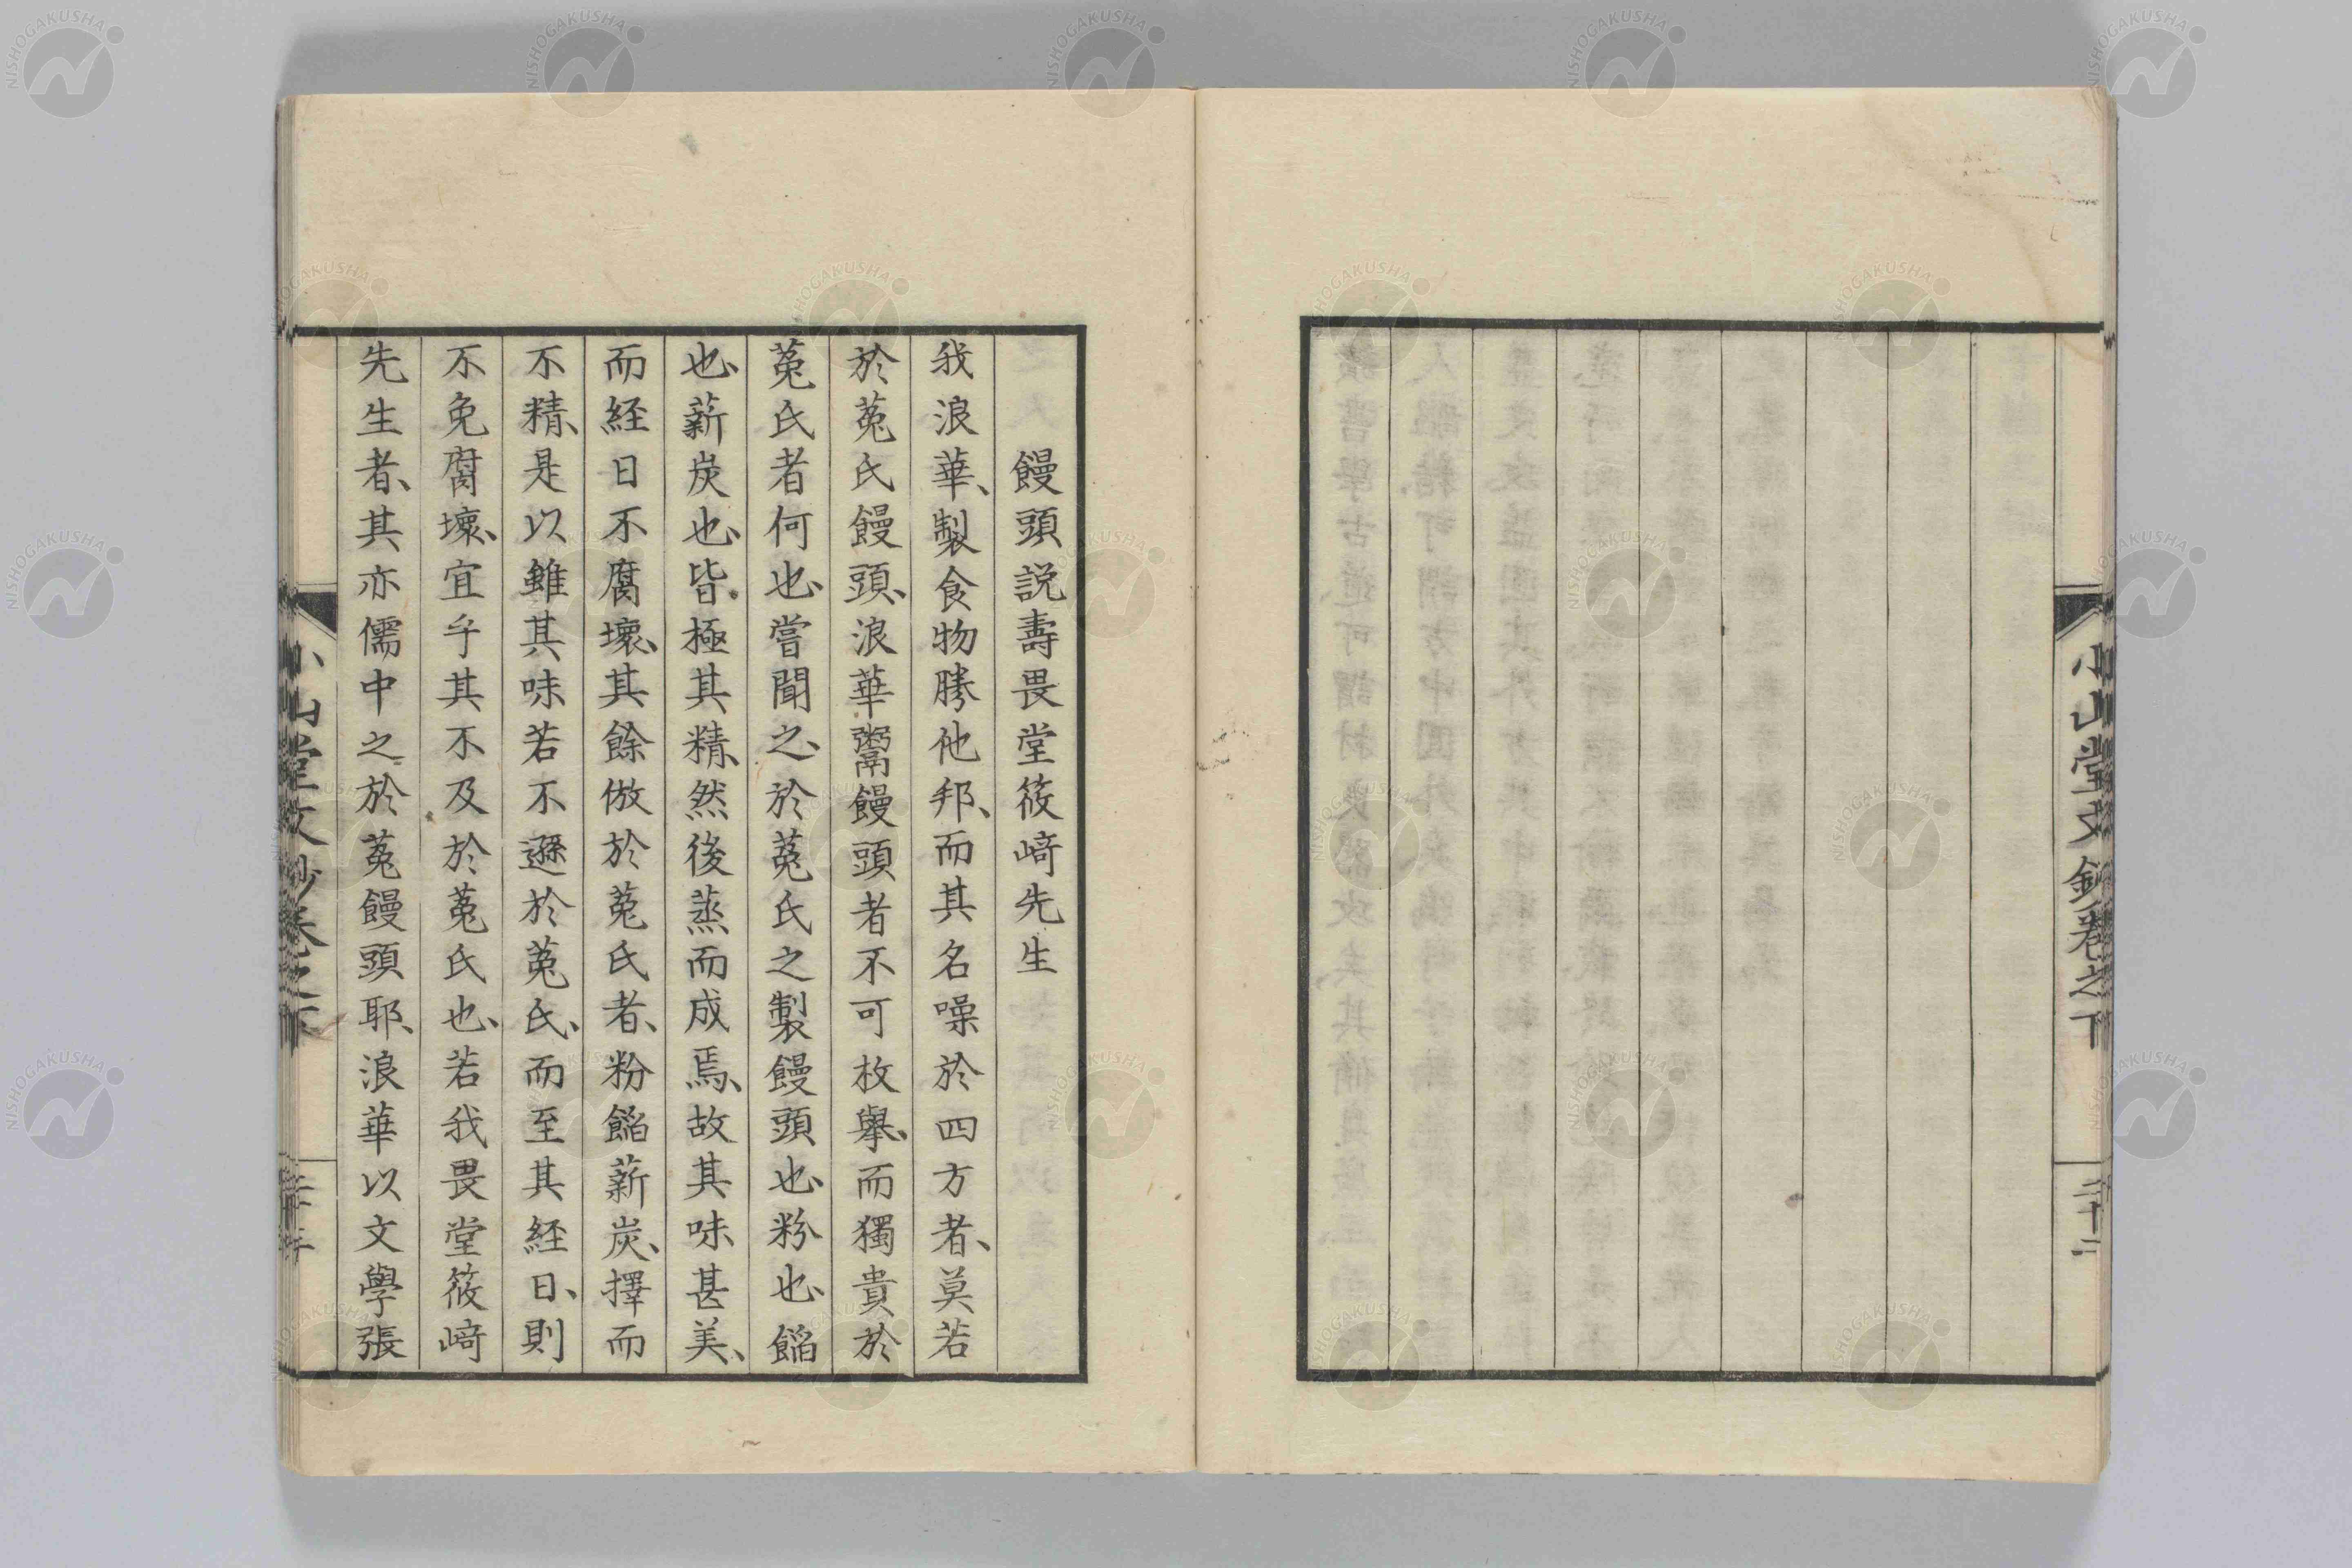 小山堂文鈔卷之下
二十二
饅頭説壽畏堂筱﨑先生
我浪華、製食物勝他邦、而其名噪於四方者、莫若
於菟氏饅頭、浪華鬻饅頭者不可枚擧、而獨貴於
菟氏者何也、嘗聞之、於菟氏之製饅頭也、粉也、餡
也、薪炭也、皆極其精、然後蒸而成焉、故其味甚美、
而経日不腐壞、其餘倣於菟氏者、粉餡薪炭、擇而
不精、是以雖其味若不遜於菟氏、而至其経日、則
不免腐壞、宜乎其不及於菟氏也、若我畏堂筱﨑
先生者、其亦儒中之於菟饅頭耶、浪華以文學張
小山堂文鈔卷之下
NISHOGAKUSHA